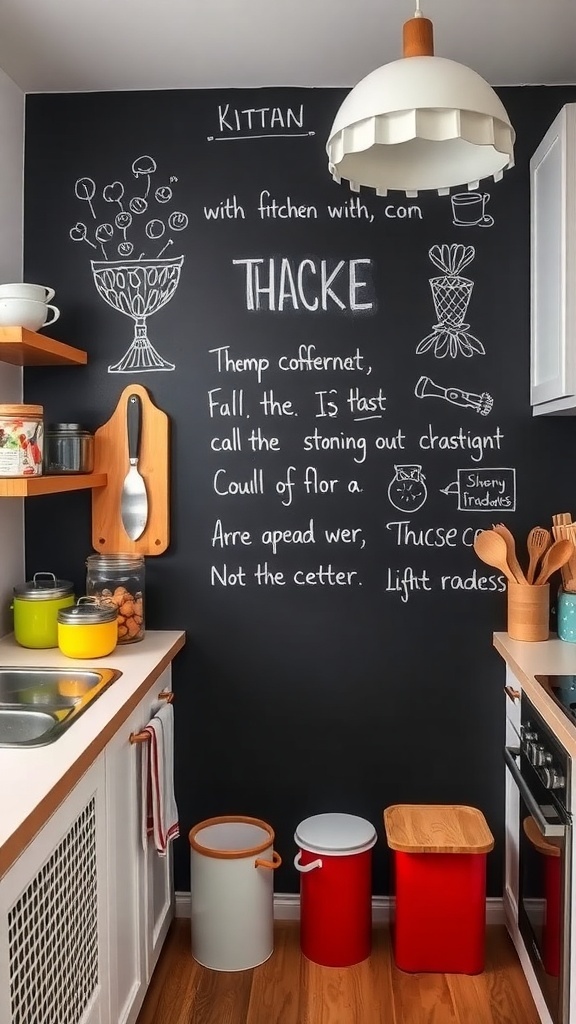 KITTAN
with fitchen with, com
THACKE
Themp coffernet,
Fall, the. Is tast
call the stoning out chrastignt
Coull of flor a
Shery
Fradories
Arre apead wer, Thucse c
Not the cetter. Lifht radess